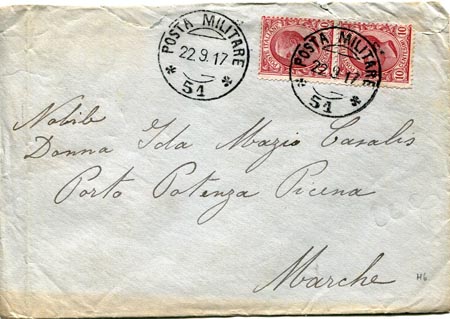 POSTA MILITARE
22.9.17
51
POSTA MILITARE
22.9.17
51
10
10
Nobile
Donna Ida Mazio Casalis
Porto Potenza Picena
Marche